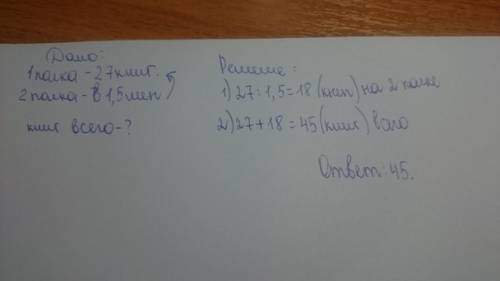 Дано:
1 полка - 27 книг.
2 полка - в 1,5 мен
книг всего - ?
Решение:
1) 27 : 1,5 = 18 (книг) на 2 полке
2) 27 + 18 = 45 (книг) всего
Ответ: 45.